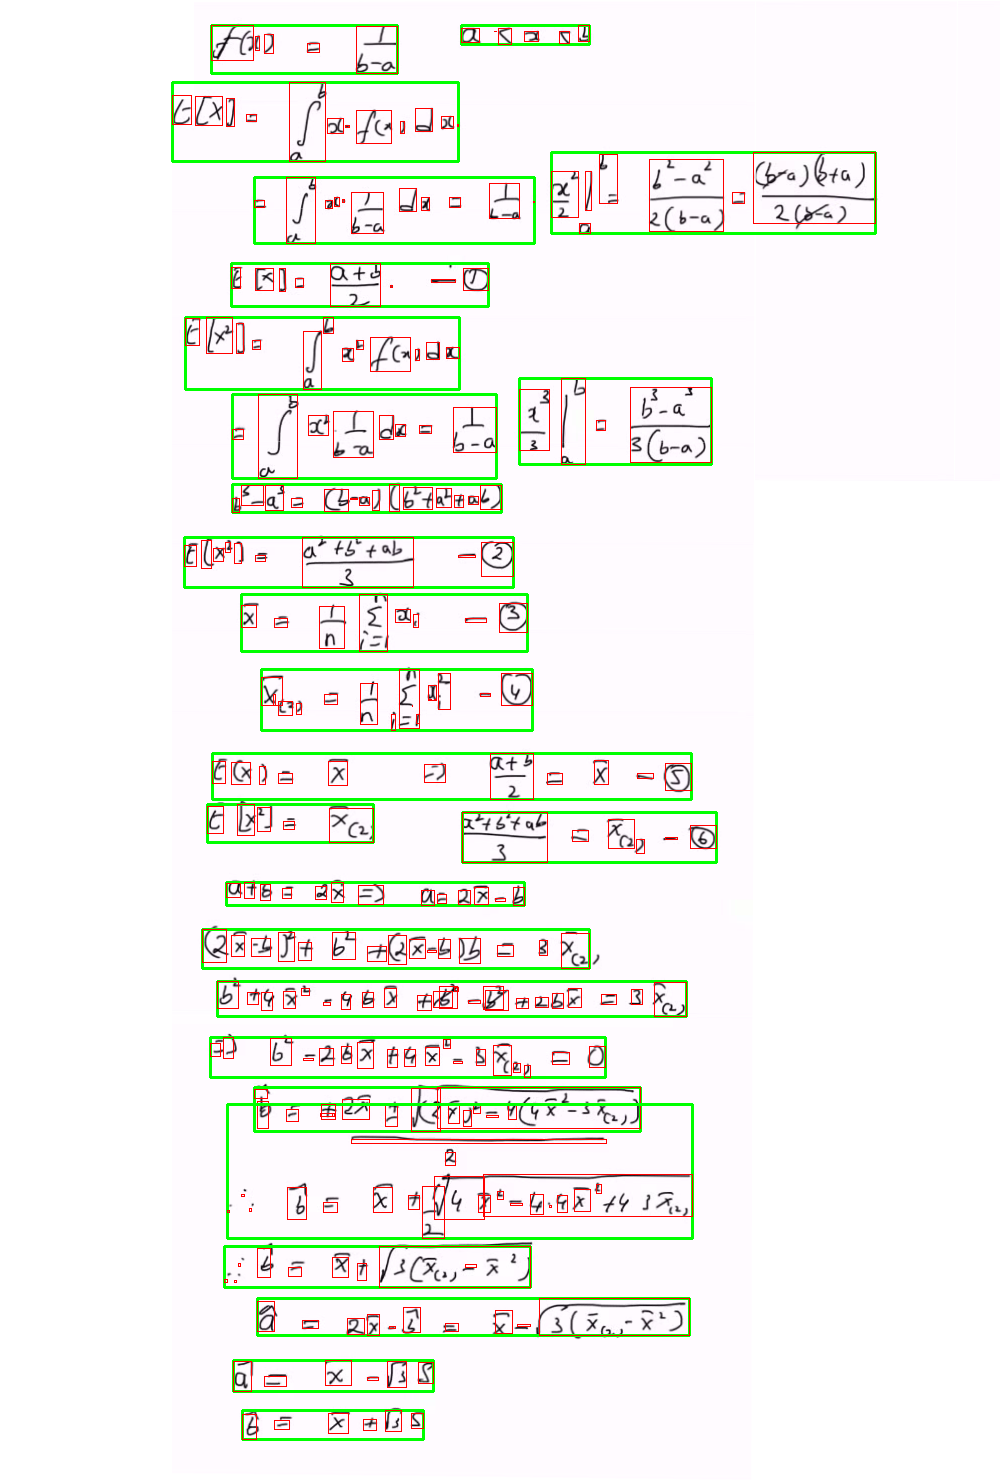 f(x) = 1/(b-a)    a < x < b
E[X] = ∫_a^b x · f(x) dx.
= ∫_a^b x · 1/(b-a) dx = 1/(b-a) · x²/2 |_a^b = (b²-a²)/(2(b-a)) = (b-a)(b+a)/(2(b-a))
E[X] = (a+b)/2 . — ①
E[X²] = ∫_a^b x² f(x) dx
= ∫_a^b x² 1/(b-a) dx = 1/(b-a) x³/3 |_a^b = (b³-a³)/(3(b-a))
b³-a³ = (b-a)(b²+a²+ab)
E(x²) = (a²+b²+ab)/3 — ②
x̄ = 1/n Σ_{i=1}^n x_i — ③
x̄_(2) = 1/n Σ_{i=1}^n x_i² — ④
E(x) = x̄ ⇒ (a+b)/2 = x̄ — ⑤
E[X²] = x̄_(2)    (x²+b²+ab)/3 = x̄_(2) — ⑥
a+b = 2x̄ ⇒ a = 2x̄ - b
(2x̄-b)² + b² + (2x̄-b)b = 3 x̄_(2)
b² + 4x̄² - 4bx̄ + b² - b² + 2bx̄ = 3 x̄_(2)
⇒ b² - 2bx̄ + 4x̄² - 3x̄_(2) = 0
b̂ = (+2x̄ ± √((2x̄)² - 4(4x̄² - 3x̄_(2))))/2
∴ b̂ = x̄ + √(4x̄² - 4·4x̄² + 4 3x̄_(2))/2
∴ b̂ = x̄ + √(3(x̄_(2) - x̄²))
â = 2x̄ - b̂ = x̄ - √(3(x̄_(2) - x̄²))
â = x̄ - √3 S
b̂ = x̄ + √3 S